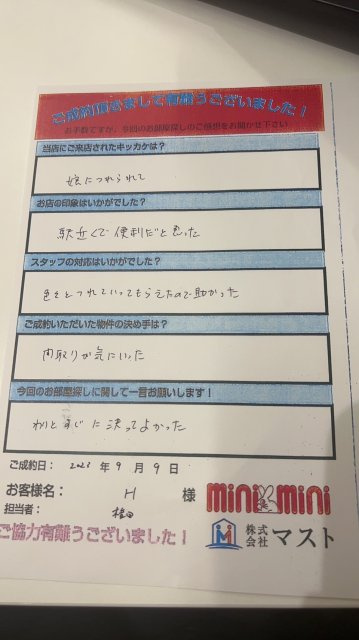 ご成約頂きまして有難うございました！
お手数ですが、今回のお部屋探しのご感想をお聞かせ下さい
当店にご来店されたキッカケは？
娘につれられて
お店の印象はいかがでした？
駅近くで便利だと思った
スタッフの対応はいかがでした？
色々とつれていってもらえたので助かった
ご成約いただいた物件の決め手は？
間取りが気にいった
今回のお部屋探しに関して一言お願いします！
わりとすぐに決ってよかった
ご成約日： 2023 年 9 月 9 日
お客様名： H 様
担当者：
ご協力有難うございました！
mini mini
株式会社 マスト